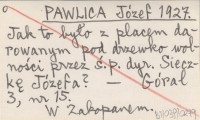 PAWLICA Józef 1927.
Jak to było z placem da-
rowanym pod drzewko wol-
ności przez ś.p. dyr. Siecz-
kę Józefa? — Góral
3, nr 15.
W Zakopanem.